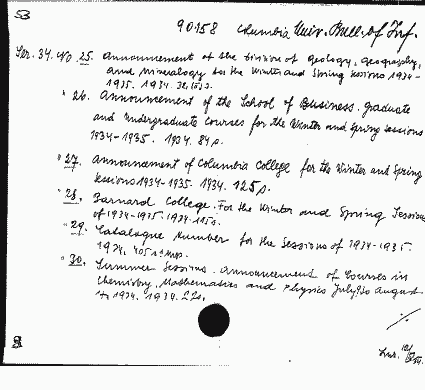 53
90158 Columbia Univ. Bull. of Inf.
Ser. 34. No 25. Announcement of the Division of Geology, Geography,
and Mineralogy for the Winter and Spring sessions 1934-
1935. 1934.
" 26. Announcement of the School of Business. Graduate
and Undergraduate Courses for the Winter and Spring sessions
1934-1935. 1934. 84 p.
" 27. Announcement of Columbia College for the Winter and Spring
sessions 1934-1935. 1934. 125 p.
" 28. Barnard College. For the Winter and Spring Sessions
of 1934-1935. 1934.
" 29. Catalogue Number for the Sessions of 1934-1935.
1934.
" 30. Summer Sessions. Announcement of Courses in
Chemistry, Mathematics and Physics July
to August
1934. 1934.